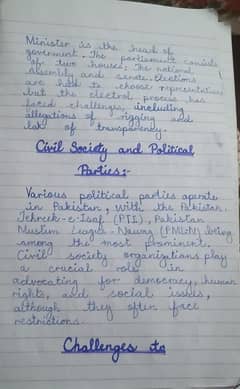 Minister is the head of
government. The parliament consists
of two houses, the national
assembly and senate. Elections
are held to choose representatives
but the electoral process has
faced challenges, including
allegations of rigging and
lack of transparency.
Civil Society and Political
Parties:-
Various political parties operate
in Pakistan, with the Pakistan
Tehreek-e-Isaf (PTI), Pakistan
Muslim League-Nawaz (PML-N) being
among the most prominent.
Civil society organizations play
a crucial role in
advocating for democracy, human
rights, and social issues,
although they often face
restrictions.
Challenges to